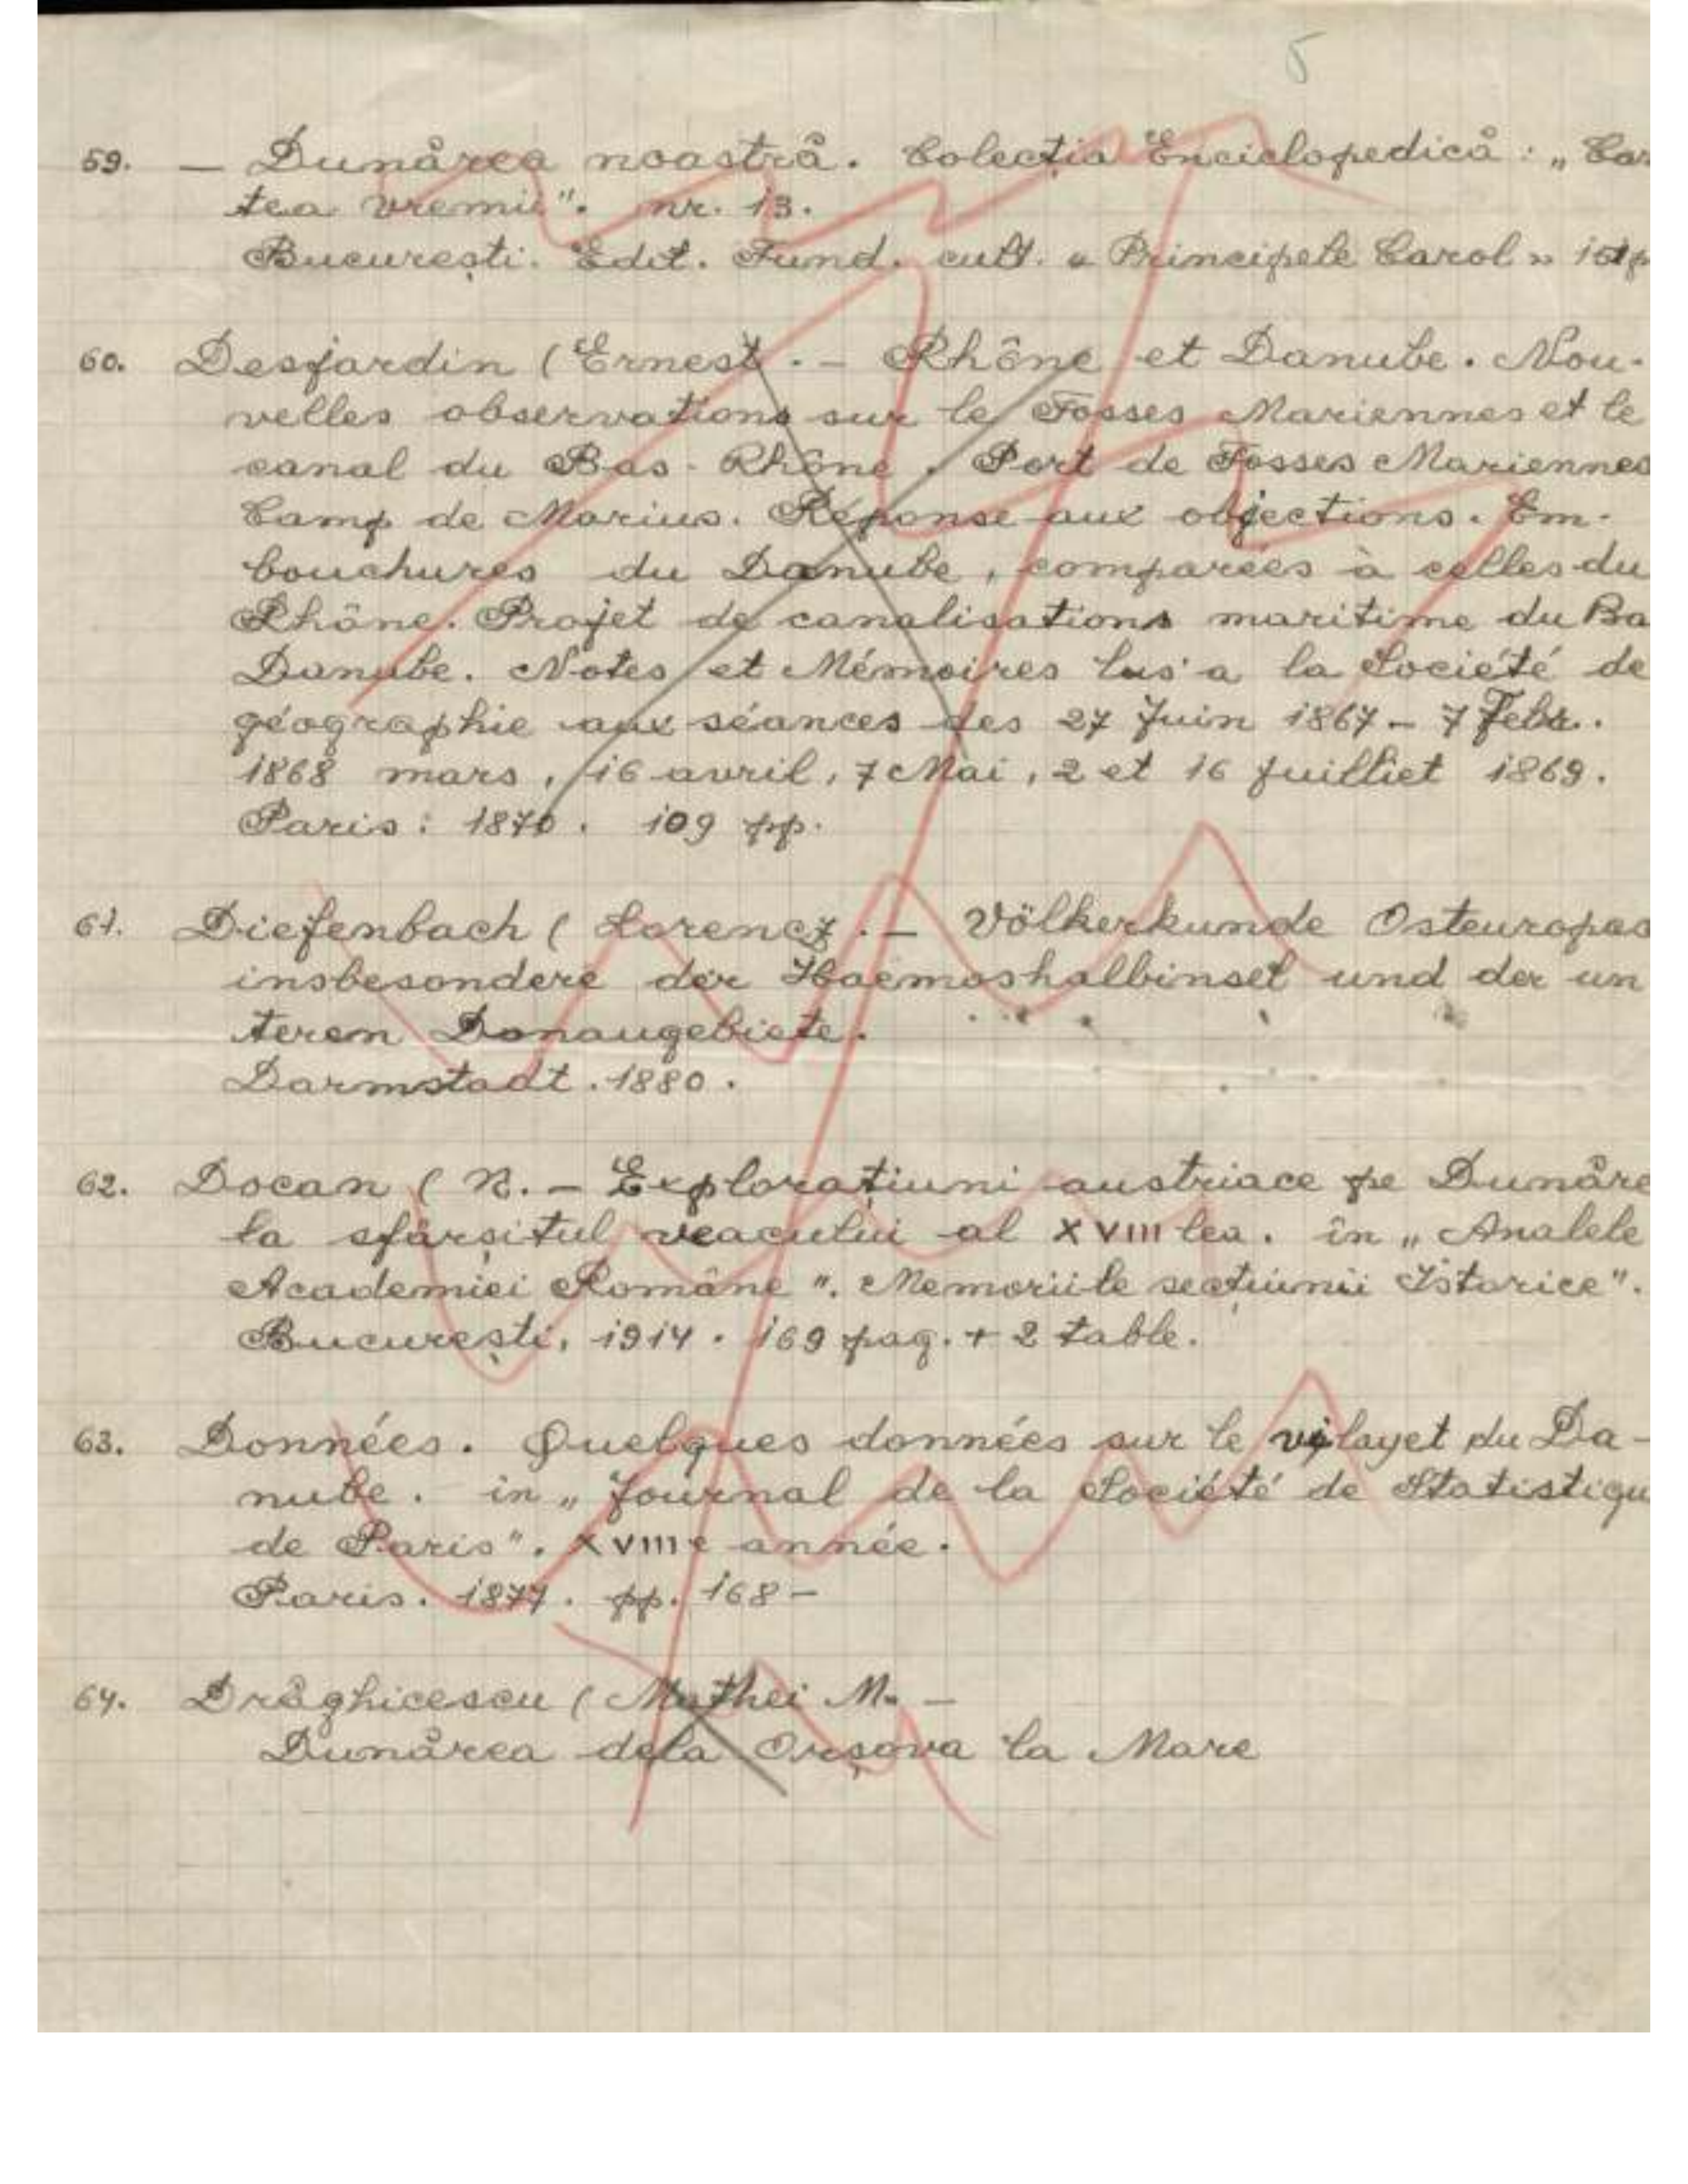 5
59. — Dunărea noastră. Colecția Enciclopedică: „Car
tea vremii". nr. 13.
București. Edit. Fund. cult. « Principele Carol »
60. Desjardin (Ernest. — Rhône et Danube. Nou-
velles observations sur le Fosses Mariennes et le
canal du Bas-Rhône. Port de Fosses Mariennes
Camp de Marius. Réponse aux objections. Em-
bouchures du Danube, comparées à celles du
Rhône. Projet de canalisations maritime du Ba
Danube. Notes et Mémoires lus a la Société de
géographie aux séances des 27 Juin 1867 – 7 Febr.
1868 mars, 16 avril, 7 Mai, 2 et 16 Juilliet 1869.
Paris: 1870. 109 pp.
61. Diefenbach (Lorencz. — Völkerkunde Osteuropas
insbesondere der Haemoshalbinsel und der un
terem Donaugebiete.
Darmstadt. 1880.
62. Docan (N. — Explorațiuni austriace pe Dunăre
la sfârșitul veacului al XVIII lea. în „Analele
Academiei Române". Memoriile secțiunii Istorice".
București, 1914. 169 pag. + 2 table.
63. Données. Quelques données sur le vilayet du Da-
nube. in „Journal de la Société de Statistiqu
de Paris". XVIIIe année.
Paris. 1877. pp. 168–
64. Drăghicescu (Mathei M. —
Dunărea dela Orșova la Mare